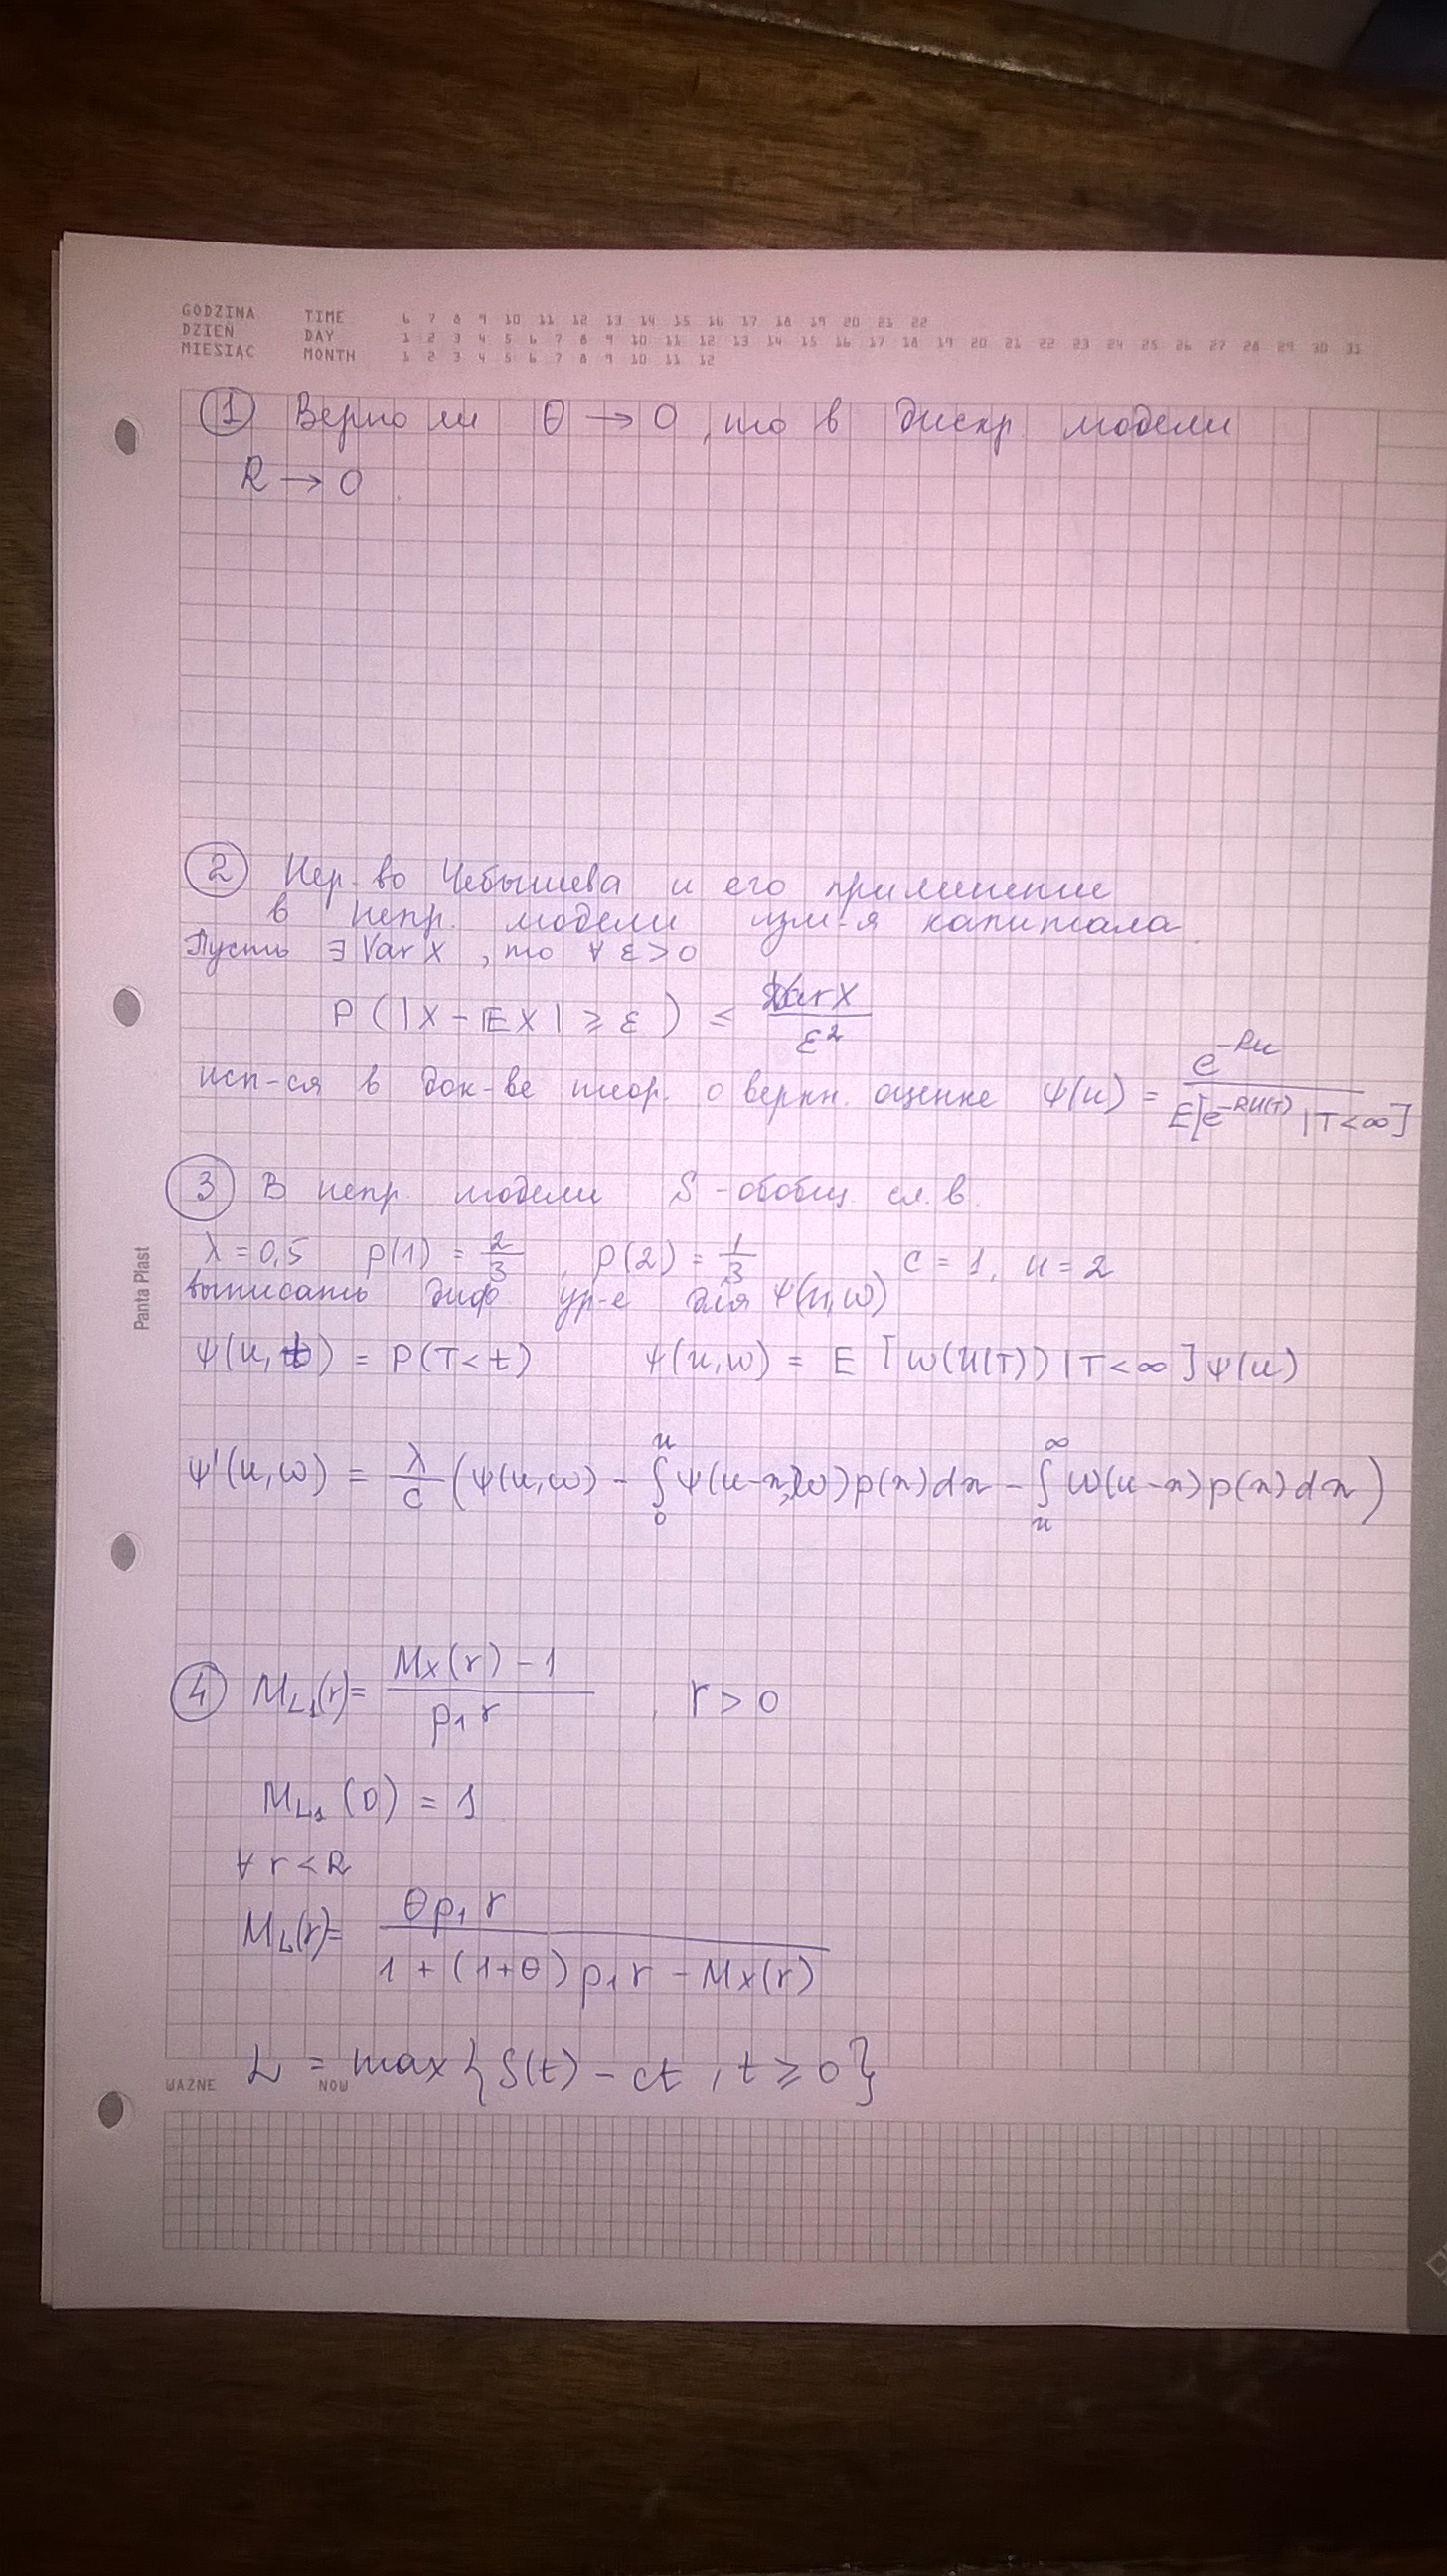 GODZINA TIME 6 7 8 9 10 11 12 13 14 15 16 17 18 19 20 21 22
DZIEŃ DAY 1 2 3 4 5 6 7 8 9 10 11 12 13 14 15 16 17 18 19 20 21 22 23 24 25 26 27 28 29 30 31
MIESIĄC MONTH 1 2 3 4 5 6 7 8 9 10 11 12
① Верно ли θ → 0, то в дискр. модели
R → 0.
② Нер-во Чебышева и его применение
в непр. модели изм-я капитала
Пусть ∃ Var X, то ∀ ε > 0
P(|X - EX| ≥ ε) ≤ VarX / ε²
исп-ся в док-ве теор. о верхн. оценке ψ(u) = e^{-Ru} / E[e^{-RU(T)} | T < ∞]
③ В непр. модели S - обобщ. сл. в.
λ = 0,5 p(1) = 2/3, p(2) = 1/3 c = 1, u = 2
выписать диф. ур-е для ψ(u, w)
ψ(u, t) = P(T < t) ψ(u, w) = E [w(U(T)) | T < ∞] ψ(u)
ψ'(u, w) = λ/c (ψ(u, w) - ∫₀ᵘ ψ(u-x, w) p(x) dx - ∫ᵤ^∞ w(u-x) p(x) dx)
④ M_{L₁}(r) = (Mx(r) - 1) / (p₁ r), r > 0
M_{L₁}(0) = 1
∀ r < R
M_L(r) = θ p₁ r / (1 + (1+θ) p₁ r - Mx(r))
L = max {S(t) - ct, t ≥ 0}
WAŻNE NOW
Panta Plast